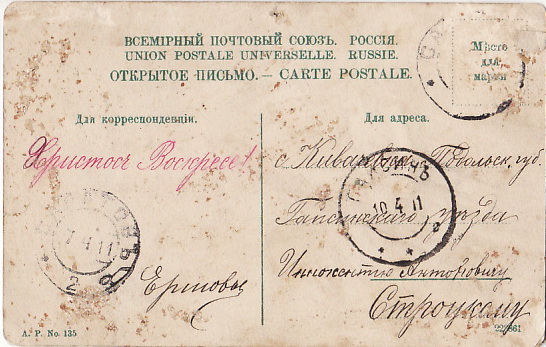 ВСЕМІРНЫЙ ПОЧТОВЫЙ СОЮЗЪ. РОССІЯ.
UNION POSTALE UNIVERSELLE. RUSSIE.
ОТКРЫТОЕ ПИСЬМО. — CARTE POSTALE.
Мѣсто
для
марки
Для корреспонденціи.
Для адреса.
Христосъ Воскресе!
с. Подольск. губ.
10 4 11
Гайсинскаго уѣзда
7 4 11
Иннокентію Антоновичу
Строцкому
A. P. No. 135